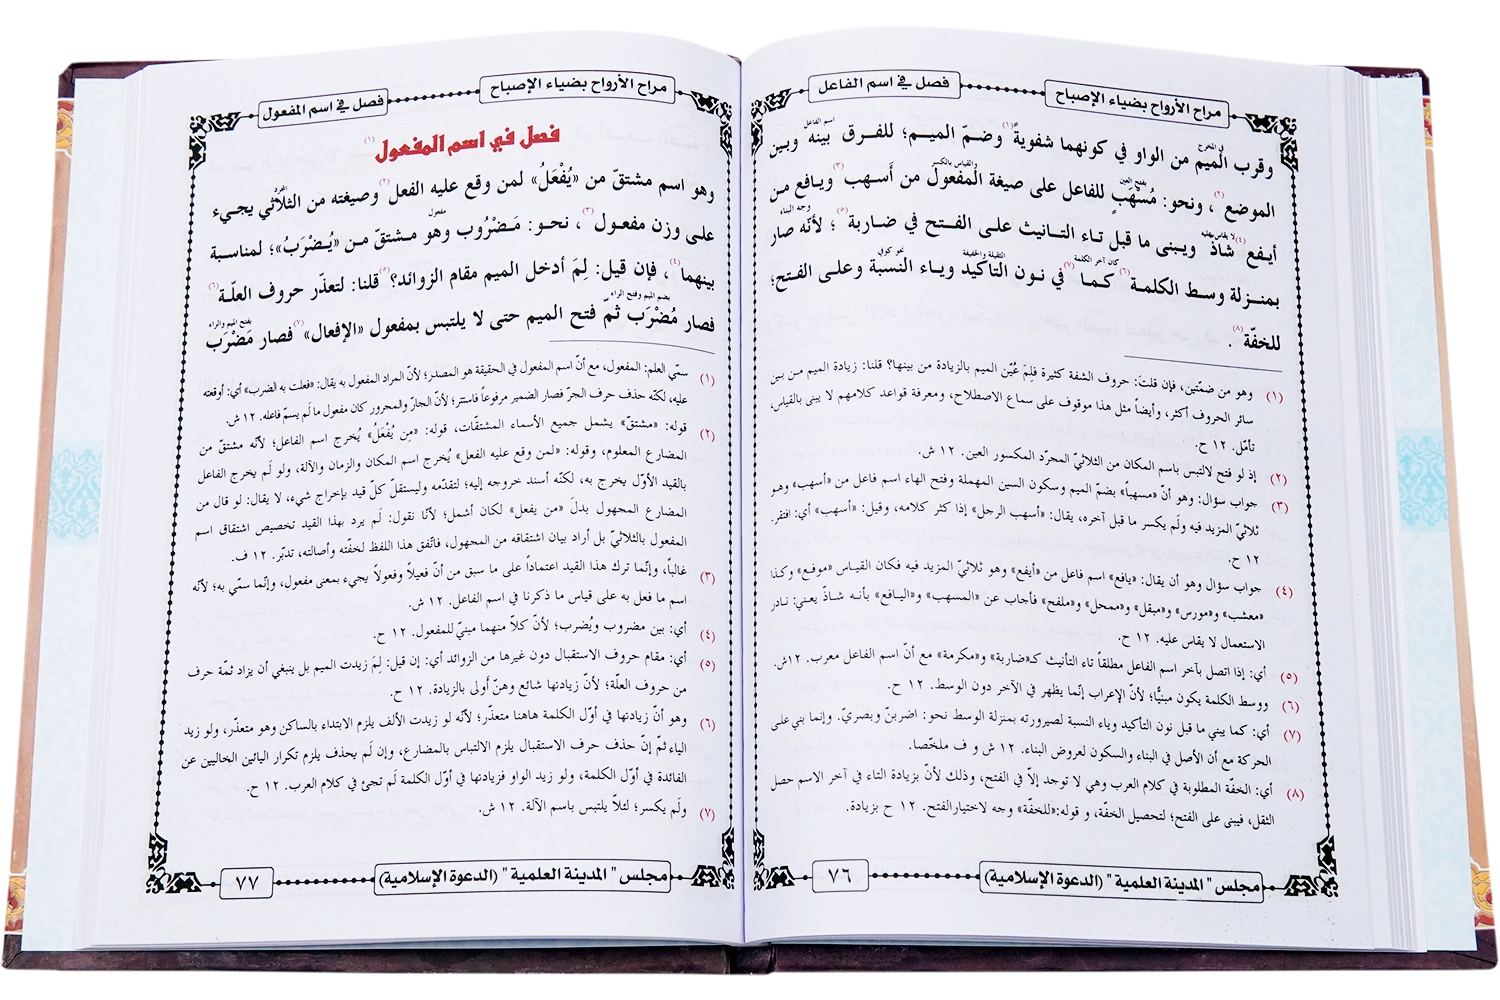 مراح الأرواح بضياء الإصباح
فصل في اسم الفاعل
وقرب الميم من الواو في كونهما شفوية(١) وضمّ الميم؛ للفرق بينه وبين
في المخرج
اسم الفاعل
الموضع(٢)، ونحو: مُسْهَبٍ للفاعل على صيغة المفعول من أَسهب(٣) ويافع من
بفتح العين
والقياس بالكسر
أيفع(٤) شاذّ ويبنى ما قبل تاء التأنيث على الفتح في ضاربة(٥)؛ لأنّه صار
لا يقاس عليه
وجه البناء
بمنزلة وسط الكلمة(٦) كما(٧) في نون التأكيد وياء النسبة وعلى الفتح؛
كان آخر الكلمة
الثقيلة والخفيفة
نحو كوفي
للخفّة(٨).
(١) وهو من ضمّتين، فإن قلتَ: حروف الشفة كثيرة فلِمَ عُيّن الميم بالزيادة من بينها؟ قلنا: زيادة الميم من بين
سائر الحروف أكثر، وأيضاً مثل هذا موقوف على سماع الاصطلاح، ومعرفة قواعد كلامهم لا يبنى بالقياس،
تأمّل. ١٢ ح.
(٢) إذ لو فتح لالتبس باسم المكان من الثلاثيّ المجرّد المكسور العين. ١٢ ش.
(٣) جواب سؤال: وهو أنّ «مسهباً» بضمّ الميم وسكون السين المهملة وفتح الهاء اسم فاعل من «أسهب» وهو
ثلاثيّ المزيد فيه ولَم يكسر ما قبل آخره، يقال: «أسهب الرجل» إذا كثر كلامه، وقيل: «أسهب» أي: افتقر.
١٢ ح.
(٤) جواب سؤال وهو أن يقال: «يافع» اسم فاعل من «أيفع» وهو ثلاثيّ المزيد فيه فكان القياس «موفع» وكذا
«معشب» و«مورس» و«مبقل» و«ممحل» و«ملفح» فأجاب عن «المسهب» و«اليافع» بأنه شاذّ يعني: نادر
الاستعمال لا يقاس عليه. ١٢ ح.
(٥) أي: إذا اتصل بآخر اسم الفاعل مطلقاً تاء التأنيث كـ«ضاربة» و«مكرمة» مع أنّ اسم الفاعل معرب. ١٢ش.
(٦) ووسط الكلمة يكون مبنيًّا؛ لأنّ الإعراب إنّما يظهر في الآخر دون الوسط. ١٢ ح.
(٧) أي: كما يبني ما قبل نون التأكيد وياء النسبة لصيرورته بمنزلة الوسط نحو: اضربنّ وبصريّ. وإنما بني على
الحركة مع أن الأصل في البناء والسكون لعروض البناء. ١٢ ش و ف ملخّصا.
(٨) أي: الخفّة المطلوبة في كلام العرب وهي لا توجد إلاّ في الفتح، وذلك لأنّ بزيادة التاء في آخر الاسم حصل
الثقل، فيبنى على الفتح؛ لتحصيل الخفّة، و قوله:«للخفّة» وجه لاختيارالفتح. ١٢ ح بزيادة.
مجلس " المدينة العلمية " (الدعوة الإسلامية)
٧٦
مراح الأرواح بضياء الإصباح
فصل في اسم المفعول
فصل في اسم المفعول(١)
وهو اسم مشتقّ من «يُفْعَلُ» لمن وقع عليه الفعل(٢) وصيغته من الثلاثي يجيء
المجرّد
على وزن مفعول(٣)، نحو: مَضْرُوب وهو مشتقّ من «يُضْرَبُ»؛ لمناسبة
مفعول
بينهما(٤)، فإن قيل: لِمَ أدخل الميم مقام الزوائد؟(٥) قلنا: لتعذّر حروف العلّة(٦)
فصار مُضْرَب ثمّ فتح الميم حتى لا يلتبس بمفعول «الإفعال»(٧) فصار مَضْرَب
بضم الميم وفتح الراء
بفتح الميم والراء
(١) سمّي العلم: المفعول، مع أنّ اسم المفعول في الحقيقة هو المصدر؛ لأنّ المراد المفعول به يقال: «فعلت به الضرب» أي: أوقعته
عليه، لكنّه حذف حرف الجرّ فصار الضمير مرفوعاً فاستتر؛ لأنّ الجارّ والمجرور كان مفعول ما لَم يسمّ فاعله. ١٢ ش.
(٢) قوله: «مشتقّ» يشمل جميع الأسماء المشتقّات، قوله: «مِن يُفْعَلُ» يُخرج اسم الفاعل؛ لأنّه مشتقّ من
المضارع المعلوم، وقوله: «لمن وقع عليه الفعل» يُخرج اسم المكان والزمان والآلة، ولو لَم يخرج الفاعل
بالقيد الأوّل يخرج به، لكنّه أسند خروجه إليه؛ لتقدّمه وليستقلّ كلّ قيد بإخراج شيء، لا يقال: لو قال من
المضارع المجهول بدلَ «من يفعل» لكان أشمل؛ لأنّا نقول: لَم يرد بهذا القيد تخصيص اشتقاق اسم
المفعول بالثلاثيّ بل أراد بيان اشتقاقه من المجهول، فاتّفق هذا اللفظ لخفّته وأصالته، تدبّر. ١٢ ف.
(٣) غالباً، وإنّما ترك هذا القيد اعتماداً على ما سبق من أنّ فعيلاً وفعولاً يجيء بمعنى مفعول، وإنّما سمّي به؛ لأنّه
اسم ما فعل به على قياس ما ذكرنا في اسم الفاعل. ١٢ ش.
(٤) أي: بين مضروب ويُضرب؛ لأنّ كلاّ منهما مبنيّ للمفعول. ١٢ ح.
(٥) أي: مقام حروف الاستقبال دون غيرها من الزوائد أي: إن قيل: لِمَ زيدت الميم بل ينبغي أن يزاد ثمّة حرف
من حروف العلّة؛ لأنّ زيادتها شائع وهنّ أولى بالزيادة. ١٢ ح.
(٦) وهو أنّ زيادتها في أوّل الكلمة هاهنا متعذّر؛ لأنّه لو زيدت الألف يلزم الابتداء بالساكن وهو متعذّر، ولو زيد
الياء ثمّ إنّ حذف حرف الاستقبال يلزم الالتباس بالمضارع، وإن لَم يحذف يلزم تكرار اليائين الخاليين عن
الفائدة في أوّل الكلمة، ولو زيد الواو فزيادتها في أوّل الكلمة لَم تجئ في كلام العرب. ١٢ ح.
(٧) ولَم يكسر؛ لئلاّ يلتبس باسم الآلة. ١٢ ش.
مجلس " المدينة العلمية " (الدعوة الإسلامية)
٧٧